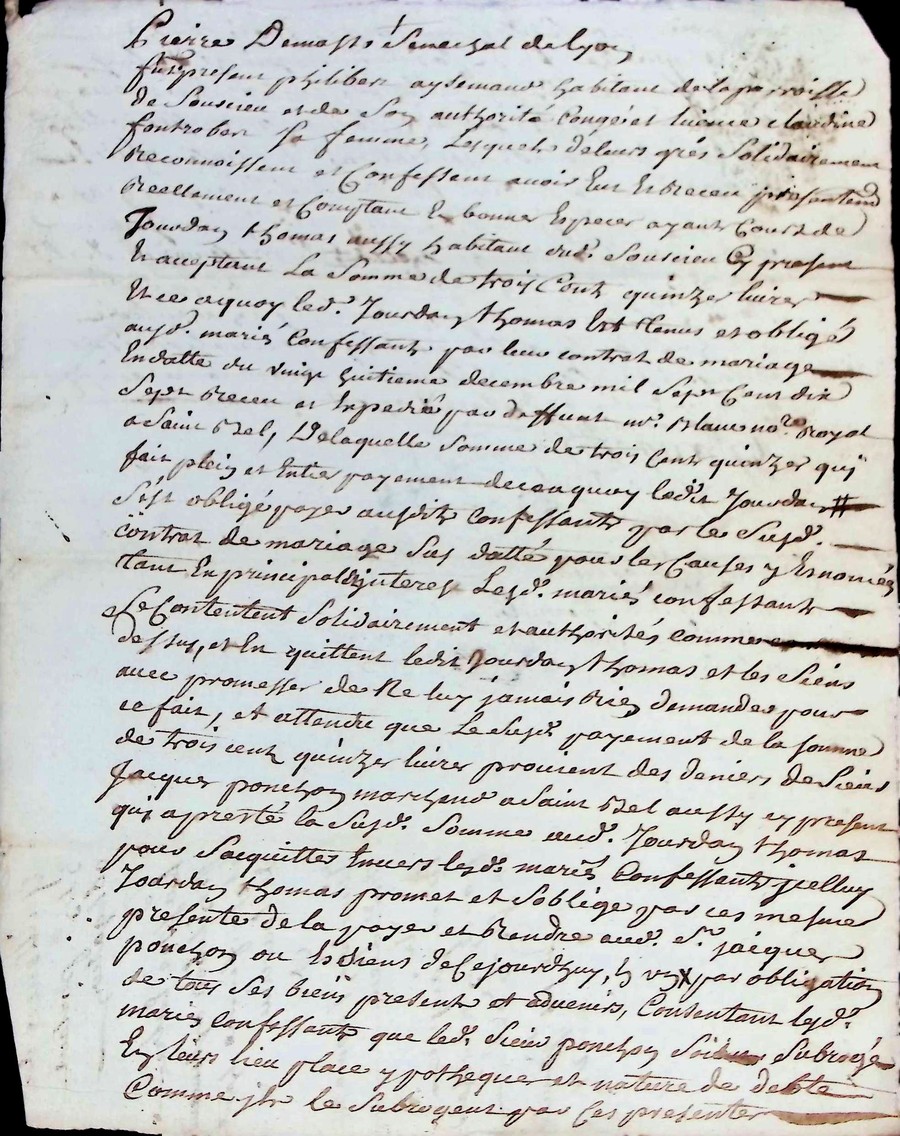 Pierre Demasso Senechal de lyon
fut present philibert aydemaud habitant de la parroisse
de Soucieu et de Son authorité congé et licence claudine
fontrobert Sa femme, Lesquels de leurs grés Solidairement
Reconnoissent et Confessent avoir Eut Et Receu presentem
Reellement et Comptant En bonnes Especes ayant Cours de
Jourdan thomas aussy habitant dud. Soucieu Cy present
Et acceptant La Somme de trois Cents quinzes livres
Et ce a quoy led. Jourdan thomas Est tenus et obligé
ausd. mariés Confessants par leur contrat de mariage
En datte du vingt huitieme decembre mil Sept Cent dix
Sept Receu et Expedié par deffunt mr. Blanc no.re Royal
a Saint Bel, De laquelle Somme de trois Cents quinzes qui
fait plein et Entier payement de ce a quoy ledit Jourdan
S'est obligé payer ausdits Confessants par le Susd.
Contrat de mariage Sus datté pour les Causes y Enoncées
tant En principal qu'interest Lesd. mariés confessants
Se Contentent Solidairement et authorisés comme
dessus, et En quittent ledit Jourdan thomas et les Siens
avec promesses de Ne luy jamais Rien demander pour
ce fait, et attendu que Le Susd. payement de la somme
de trois cents quinzes livres provient des deniers de Sieur
Jacques ponchon marchand a Saint Bel aussy cy present
qui a presté la Susd. Somme aud. Jourdan thomas
pour Sacquitter Envers lesd. mariés Confessants jcelluy
Jourdan thomas promet et Soblige par ces mesmes
presentes de la payer et Rendre aud. Sr. jacques
ponchon ou Es Siens de Cejourdhuy, En par obligation
de tous Ses biens presents et advenirs, Consentant lesd.
mariés confessants que led. Sieur ponchon Soit Subrogé
En leurs lieu place ypotheques et nature de debte
Comme jls le Subrogent par Ces presentes